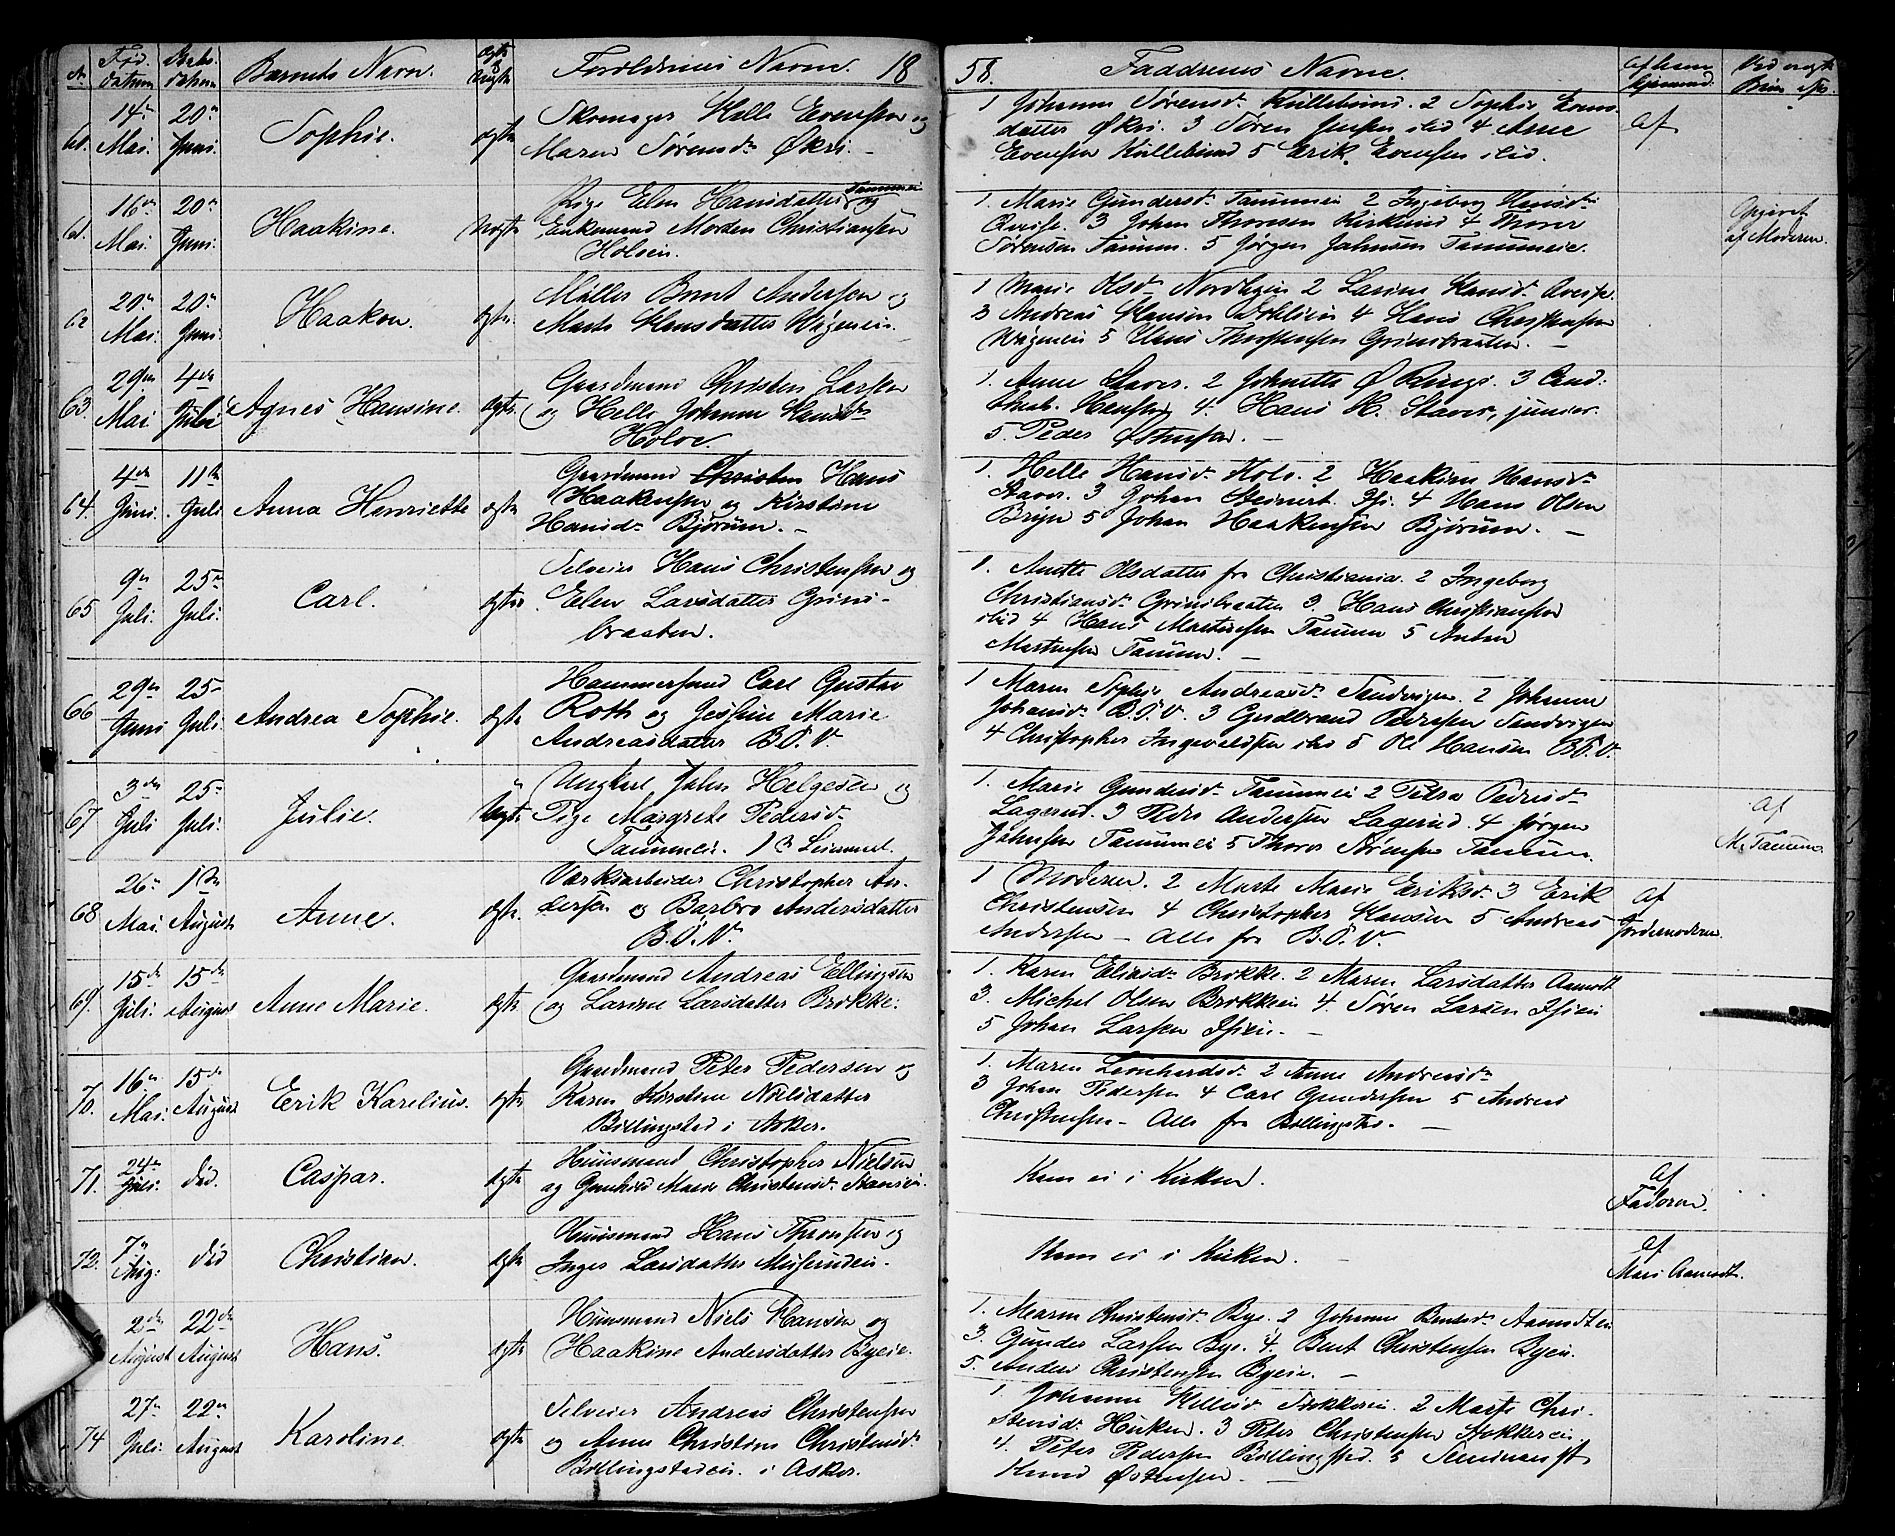 N. Fød. datum Daabs. datum Barnets Navn. Ægte Uægte Forældrenes Navne. 18
58. Faddrenes Navne.
60. 14de Mai. 20de Juni. Sophie. ægte Skomager Helle Evensen og
Maren Sørensd. Økri. –
1 Johanne Sørensd. Kullebund. 2 Sophie Evens-
datter Økri. 3 Søren Jensen ibid 4 Arne
Evensen Kullebund 5 Erik Evensen ibid.
Af
61. 16de Mai. 20de Juni. Haakine. Uægte Pige Elen Hansdatter Tanumeie og
Enkemand Morden Christiansen
Holseie.
1. Marie Gundersd. Tanumeie 2 Ingeborg Hansd.
3 Johan Thoresen Kirklund 4 Thorer
Sørensen Tanum. 5 Jørgen Johnsen Tanumeie.
Opgivet
af Moderen.
62 20de Mai. 20de Juni. Haakon. ægte. Møller Bernt Andersen og
Marte Hansdatter Wøgneie.
1 Marie Olsd. Nordbyen 2 Larine Hansd.
3 Andreas Hansen 4 Hans Christensen
Wøgneie 5 Hans Thostensen Grinibraaten. –
63. 29de Mai 4de Juli Agnes Hansine. ægte. Gaardmand Christen Larsen
og Helle Johanne Hansd.
Holoe.
1. Anne Staver. 2 Johnette Ø Ringi. 3 Cand:
4. Hans H. Staver, junior.
5. Peder Østensen. –
64. 4de Juni. 11te Juli Anna Henriette ægte Gaardmand Christen Hans
Haakensen og Kirstine
Hansd. Bjørum. –
1. Helle Hansd. Holo. 2 Haakine Hansd.
Staver. 3 Johan Steinert. 4 Hans Olsen
Bryn 5 Johan Haakensen Bjørum. –
65 9de Juli. 25de Juli. Carl. ægte. Selveier Hans Christensen og
Elen Larsdatter Grini-
braaten.
1. Anette Olsdatter fra Christiania. 2 Ingeborg
Christiansd. Grinibraaten 3. Hans Christiansen
ibid 4 Hans Martinsen Tanum 5 Anton
Martinsen Tanum. –
66 29de Juni 25de Juli. Andrea Sophie. ægte Hammersmed Carl Gustav
Roth og Jessine Marie
Andreasdatter B.Ö.V.
1 Maren Sophie Andreasd. Sandvigen. 2 Johanne
Johansd. B.Ö.V. 3 Gudbrand Pedersen Sandvigen
4 Christopher Ingevaldsen ibid 5 Ole Hansen B.Ö.V.
67 3de Juli 25de Juli. Julie. Uægte. Ungkarl John Helgesen og
Pige Margrete Pedersd.
Tanumeie.
1. Marie Gundersd. Tanumeie 2 Petra Pedersd.
Lagerud. 3 Peder Andersen Lagerud. 4 Jørgen
Johnsen Tanumeie 5 Thorer Sørensen Tanum.
Af
M. Tanum.
68 26de Mai. 1ste August Anne. ægte. Værksarbeider Christopher An-
dersen og Barbro Andersdatter
B.Ö.V.
1 Moderen. 2 Marte Marie Eriksd. 3 Erik
Christensen 4 Christopher Hansen 5 Andreas
Andersen – Alle fra B.Ö.V.
Af
Jordemoderen.
69. 15de Juli. 15de August Anne Marie. ægte Gaardmand Andreas Ellingsen
og Larine Larsdatter Brøkke.
1. Karen Eliasd. Brøkke. 2 Maren Larsdatter Aamodt
3. Michel Olsen Brøkkeie 4. Søren Larsen Isieie
5 Johan Larsen Isieie. –
70. 16de Mai. 15de August Erik Karelius. ægte Gaardmand Peter Pedersen og
Karen Kirstine Nielsdatter
Billingstad i Asker.
1. Maren Leonhardsd. 2 Anne Andreasd.
3 Johan Pedersen 4 Carl Gundersen 5 Andreas
Christensen – Alle fra Billingstad. –
71. 24de Juli. did. Caspar. ægte Huusmand Christopher Nielsen
og Gunhild Marie Christensd.
Kom ei i Kirken.
Af
Faderen.
72. 7de Aug. did Christian. ægte Huusmand Hans Thronsen og
Inger Larsdatter
Kom ei i Kirken. –
Af
Mari Aamodt.
2den August 22de August Hans. ægte Huusmand Niels Hansen og
Haakine Andersdatter Byeie.
1. Maren Christensd. Bye. 2 Johanne Berntsd. Aamodteie
3. Gunder Larsen Bye. 4. Bernt Christensen Byeie.
5. Anders Christensen Byeie. –
74 27de Juli. 22de August Karoline. ægte Selveier Andreas Christensen
og Anne Christine Christensd.
Billingstadeie. i Asker.
1. Johanne Stokkereie. 2 Marte Chri-
stensd. 3 Peter Christensen Stokkereie.
4. Peter Pedersen Billingstad. 5 Seminarist
Knud Østensen. –